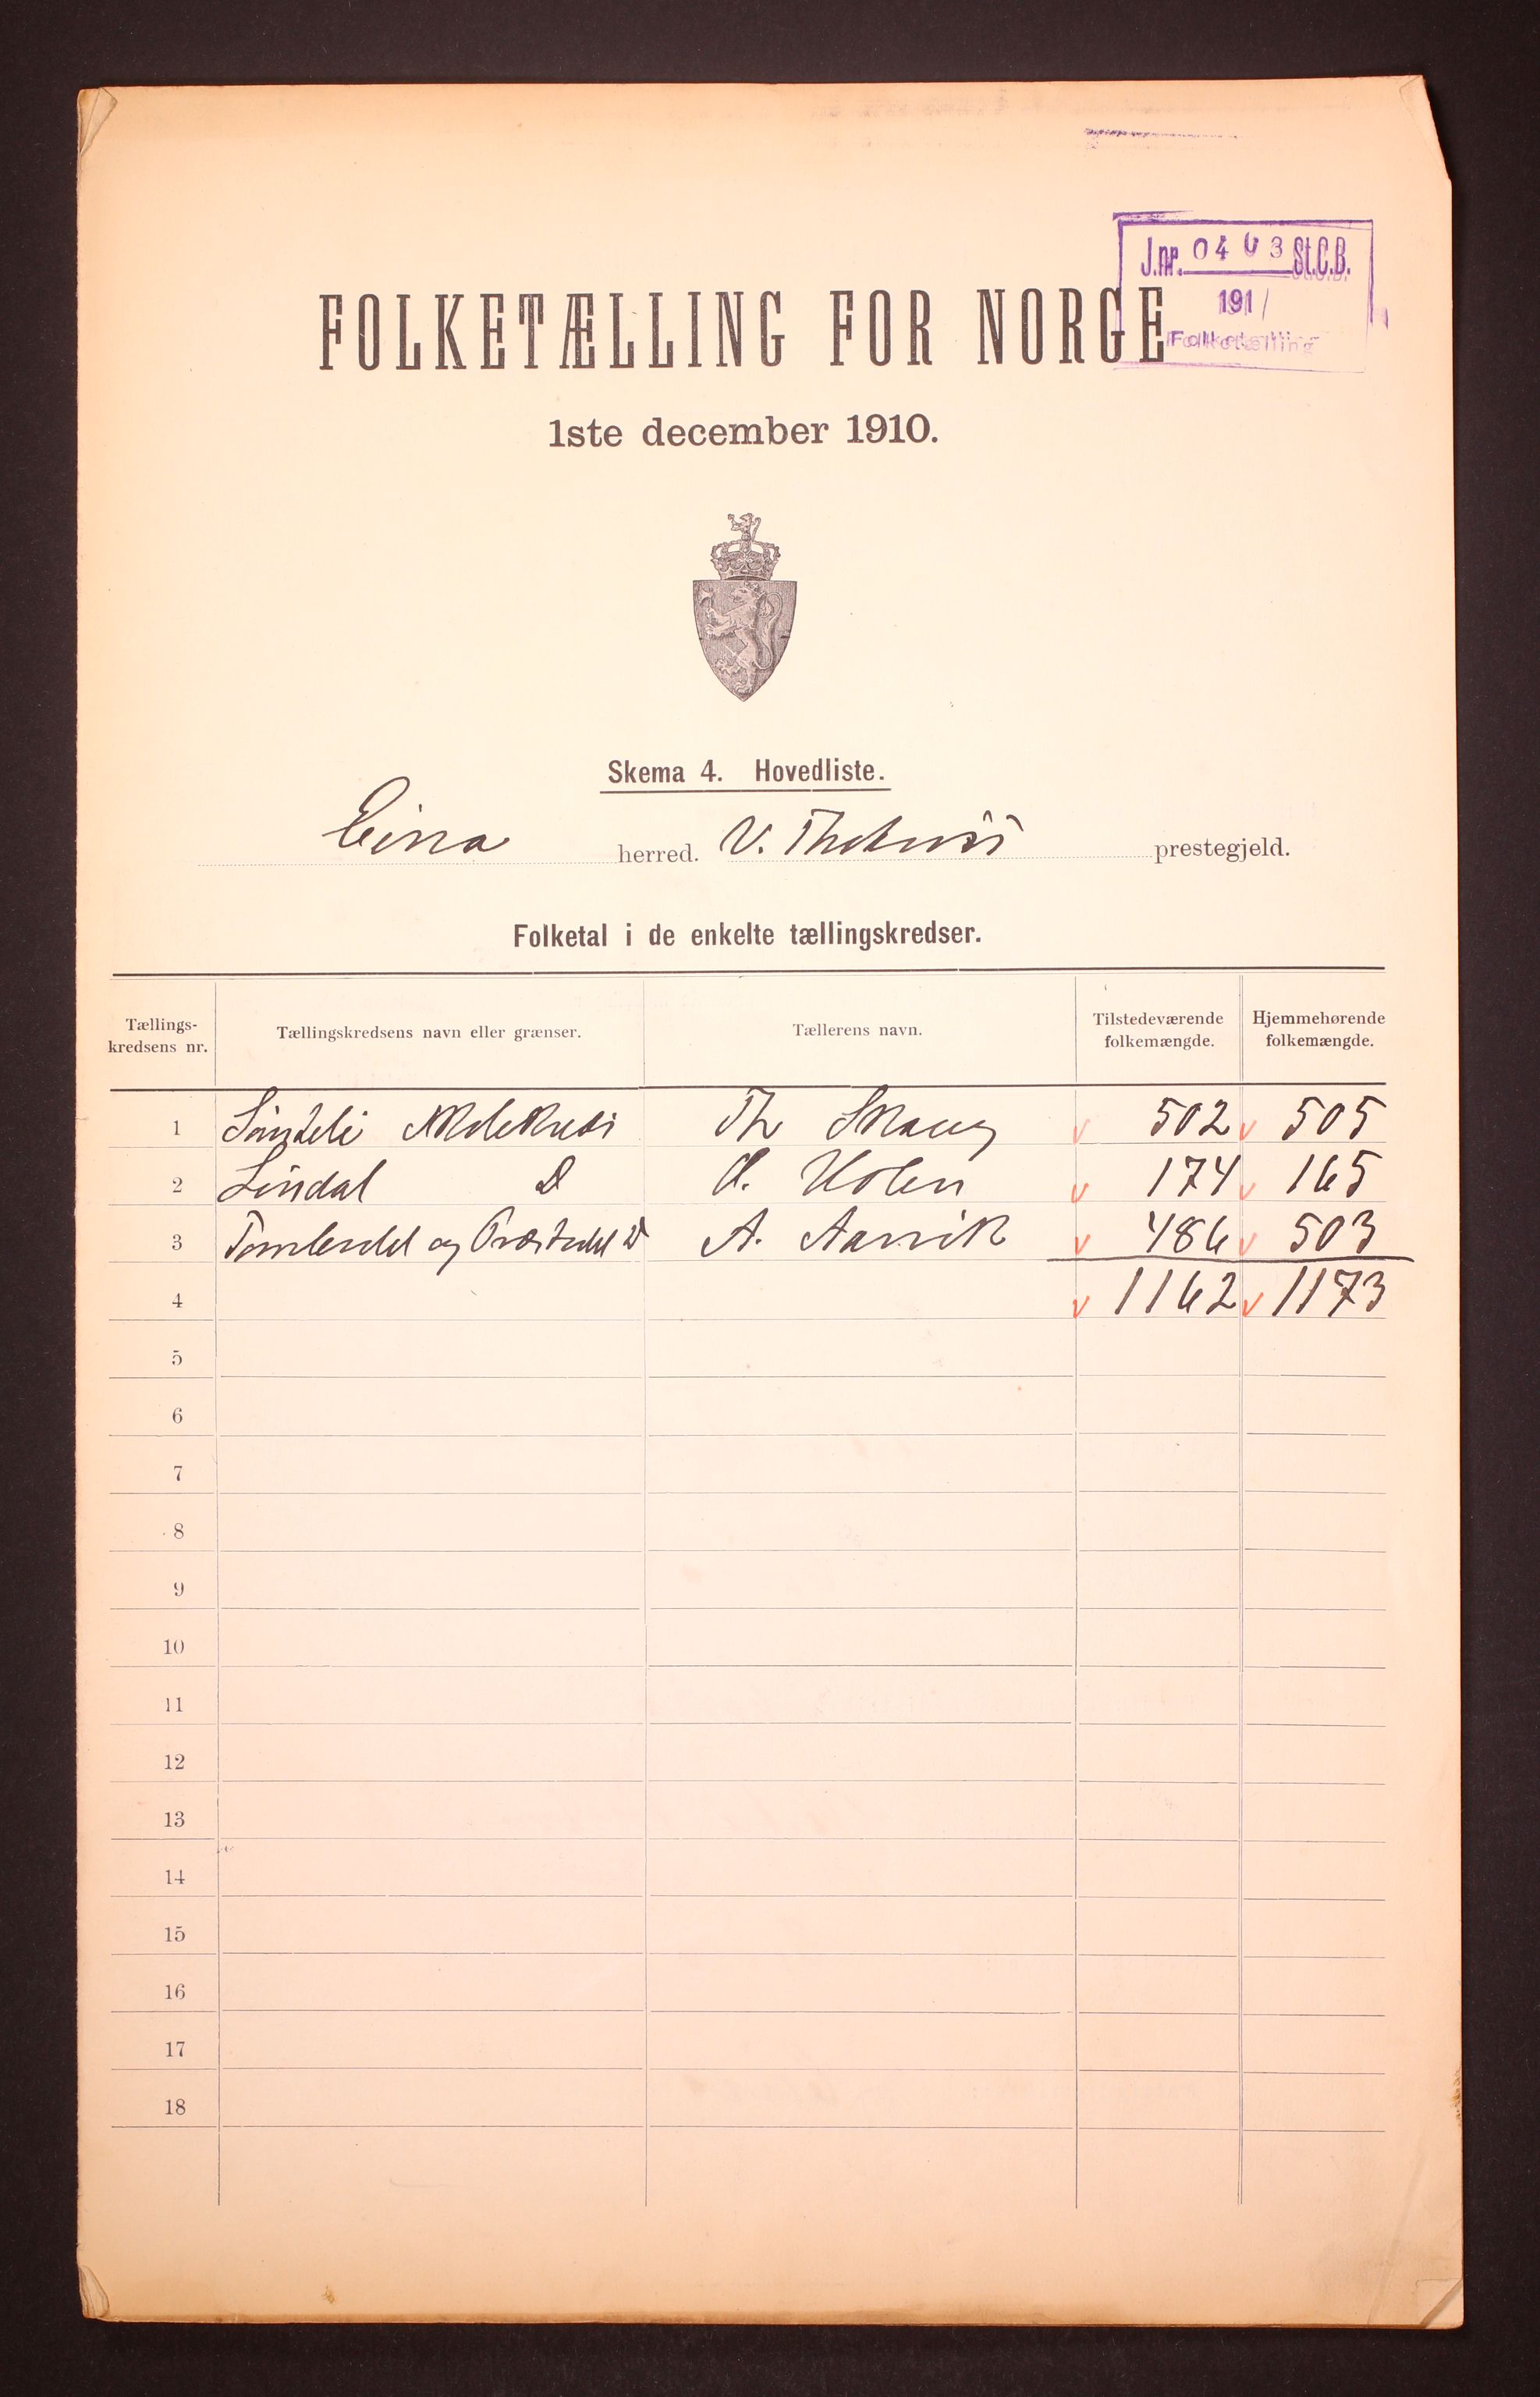 J.nr. 0403 St.C.B.
191/
Folketælling
FOLKETÆLLING FOR NORGE
1ste december 1910.
Skema 4. Hovedliste.
Eina herred. V. Thoten prestegjeld.
Folketal i de enkelte tællingskredser.
Tællings-kredsens nr. Tællingskredsens navn eller grænser. Tællerens navn. Tilstedeværende folkemængde. Hjemmehørende folkemængde.
1 Sønsteli Skolekreds Th Skaug 502 505
2 Sindal D Holen 174 165
3 og A. Aarvik 486 503
4 1162 1173
5
6
7
8
9
10
11
12
13
14
15
16
17
18